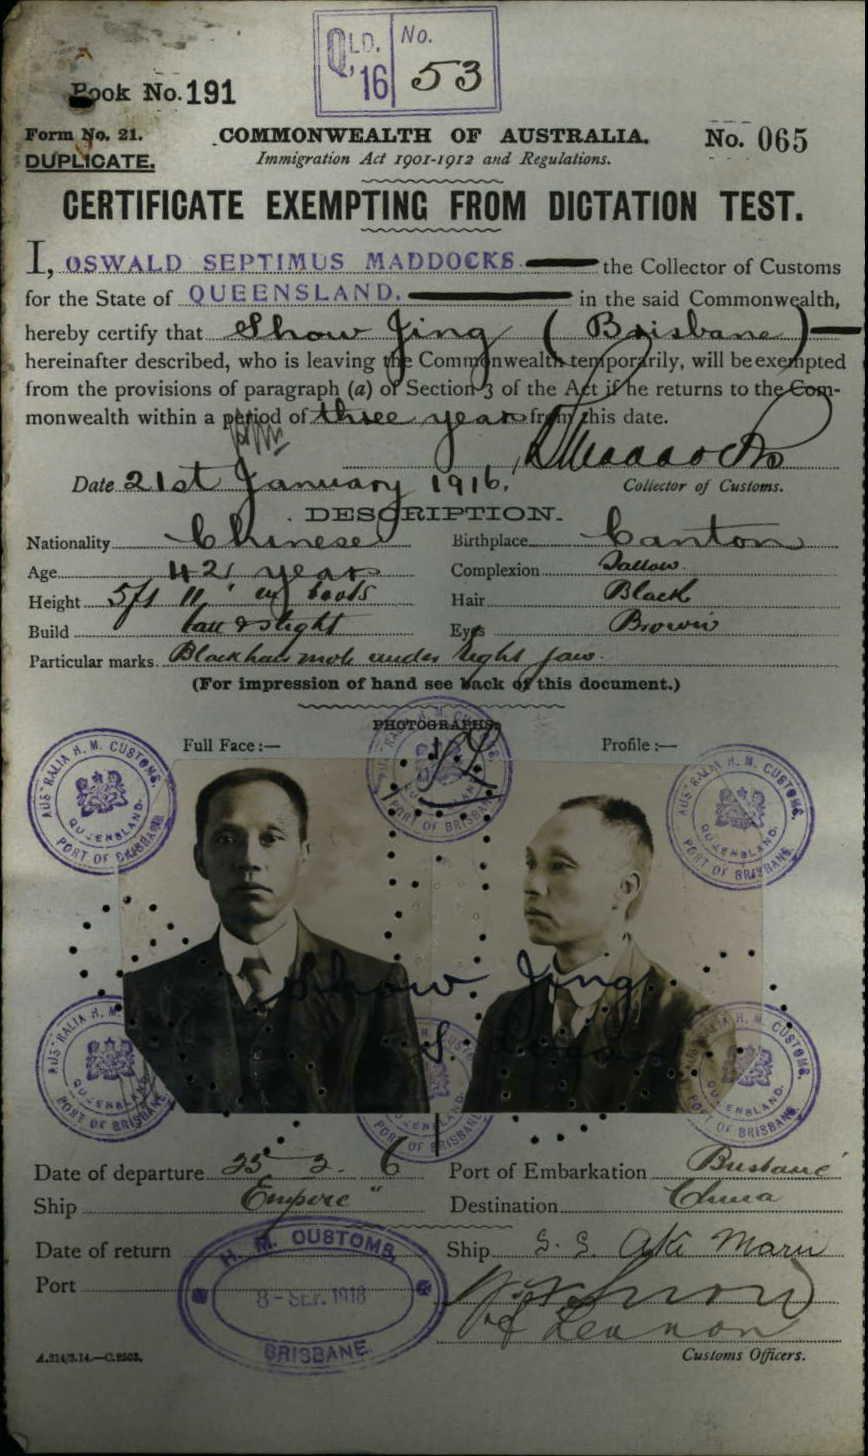 QLD. No.
'16 53
Book No. 191
Form No. 21. COMMONWEALTH OF AUSTRALIA. No. 065
DUPLICATE. Immigration Act 1901-1912 and Regulations.
CERTIFICATE EXEMPTING FROM DICTATION TEST.
I, OSWALD SEPTIMUS MADDOCKS the Collector of Customs
for the State of QUEENSLAND. in the said Commonwealth,
hereby certify that Show Jing (Brisbane)
hereinafter described, who is leaving the Commonwealth temporarily, will be exempted
from the provisions of paragraph (a) of Section 3 of the Act if he returns to the Com-
monwealth within a period of three years from this date.
Maddocks
Date 21st January 1916. Collector of Customs.
DESCRIPTION.
Nationality Chinese Birthplace Canton
Age 42 years Complexion Sallow
Height 5ft 11" boots Hair Black
Build tall & slight Eyes Brown
Particular marks. Black hair mole under right jaw.
(For impression of hand see back of this document.)
PHOTOGRAPHS.
Full Face :— Profile :—
AUSTRALIA H. M. CUSTOMS. QUEENSLAND. PORT OF BRISBANE
AUSTRALIA H. M. CUSTOMS. QUEENSLAND. PORT OF BRISBANE
AUSTRALIA H. M. CUSTOMS. QUEENSLAND. PORT OF BRISBANE
Show Jing
AUSTRALIA H. M. CUSTOMS. QUEENSLAND. PORT OF BRISBANE
PORT OF BRISBANE
AUSTRALIA H. M. CUSTOMS. QUEENSLAND. PORT OF BRISBANE
Date of departure 6 Port of Embarkation Brisbane
Ship Empire" Destination China
Date of return Ship S. S. Aki Maru
Port
H. M. CUSTOMS,
8 - SEP. 1916
BRISBANE
A.214/3.14.—C.2503. Customs Officers.